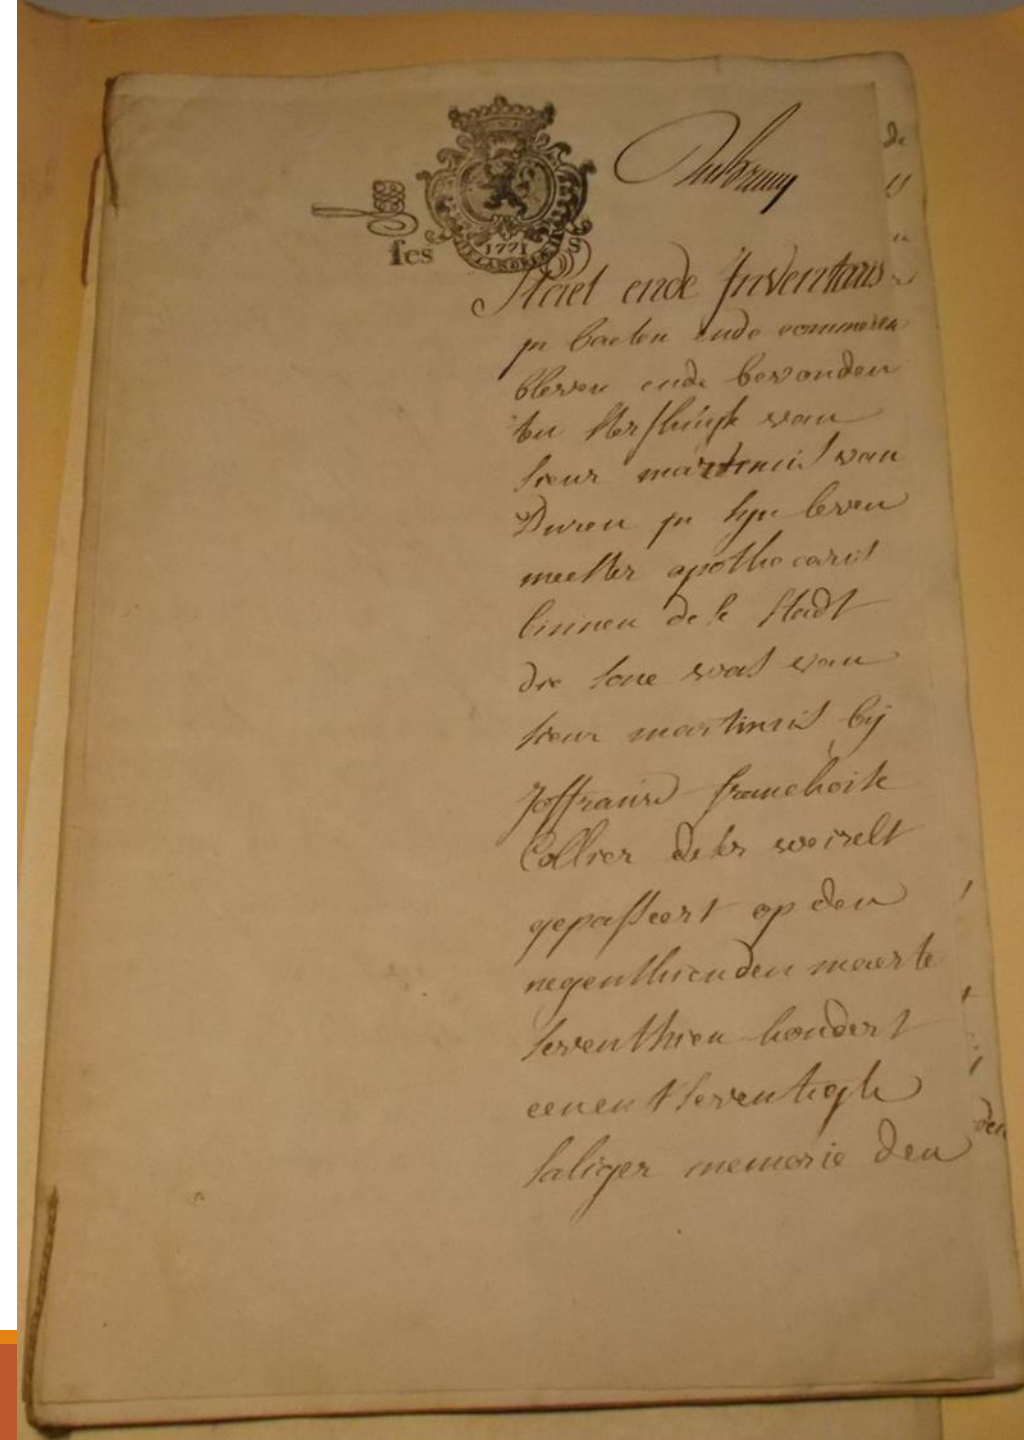 fes
1771
Staet ende Inventaris
in baeten ende commeren
bleven ende bevonden
ten sterfhuyse van
sieur martinus van
Duren in syn leven
meester apothecaris
binnen dese stadt
die sone was van
sieur martinus by
Joffrauw franchoise
Collier deser weirelt
gepasseert op den
negenthienden maerte
seventhien hondert
eenentseventigh
saliger memorie den